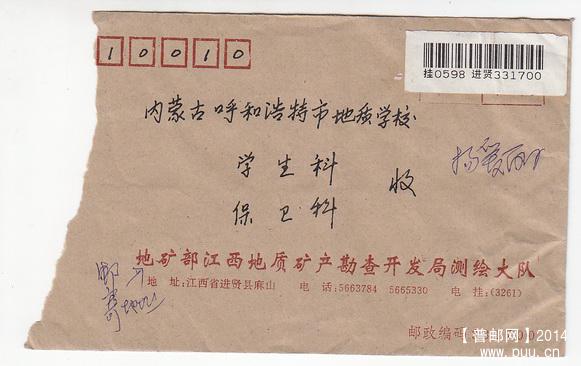 10010
挂0598 进贤331700
内蒙古呼和浩特市地质学校
学生科
保卫科
收
地矿部江西地质矿产勘查开发局测绘大队
地 址:江西省进贤县麻山 电 话:5663784 5665330 电 挂:(3261)
邮政编码
【普邮网】2014
www.puu.cn